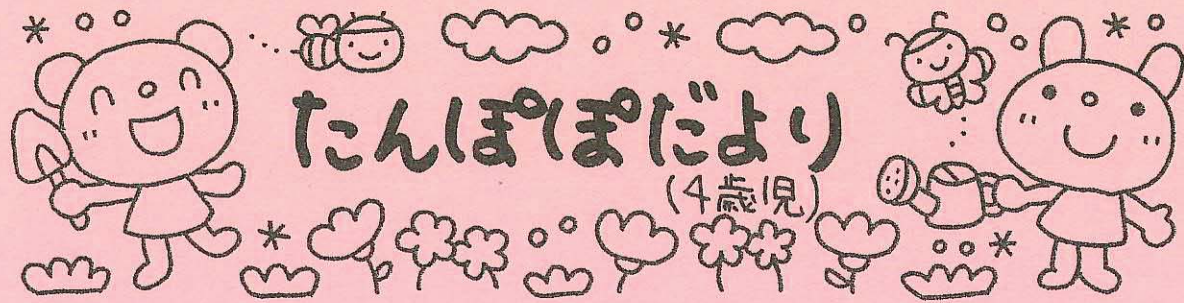 たんぽぽだより
(4歳児)